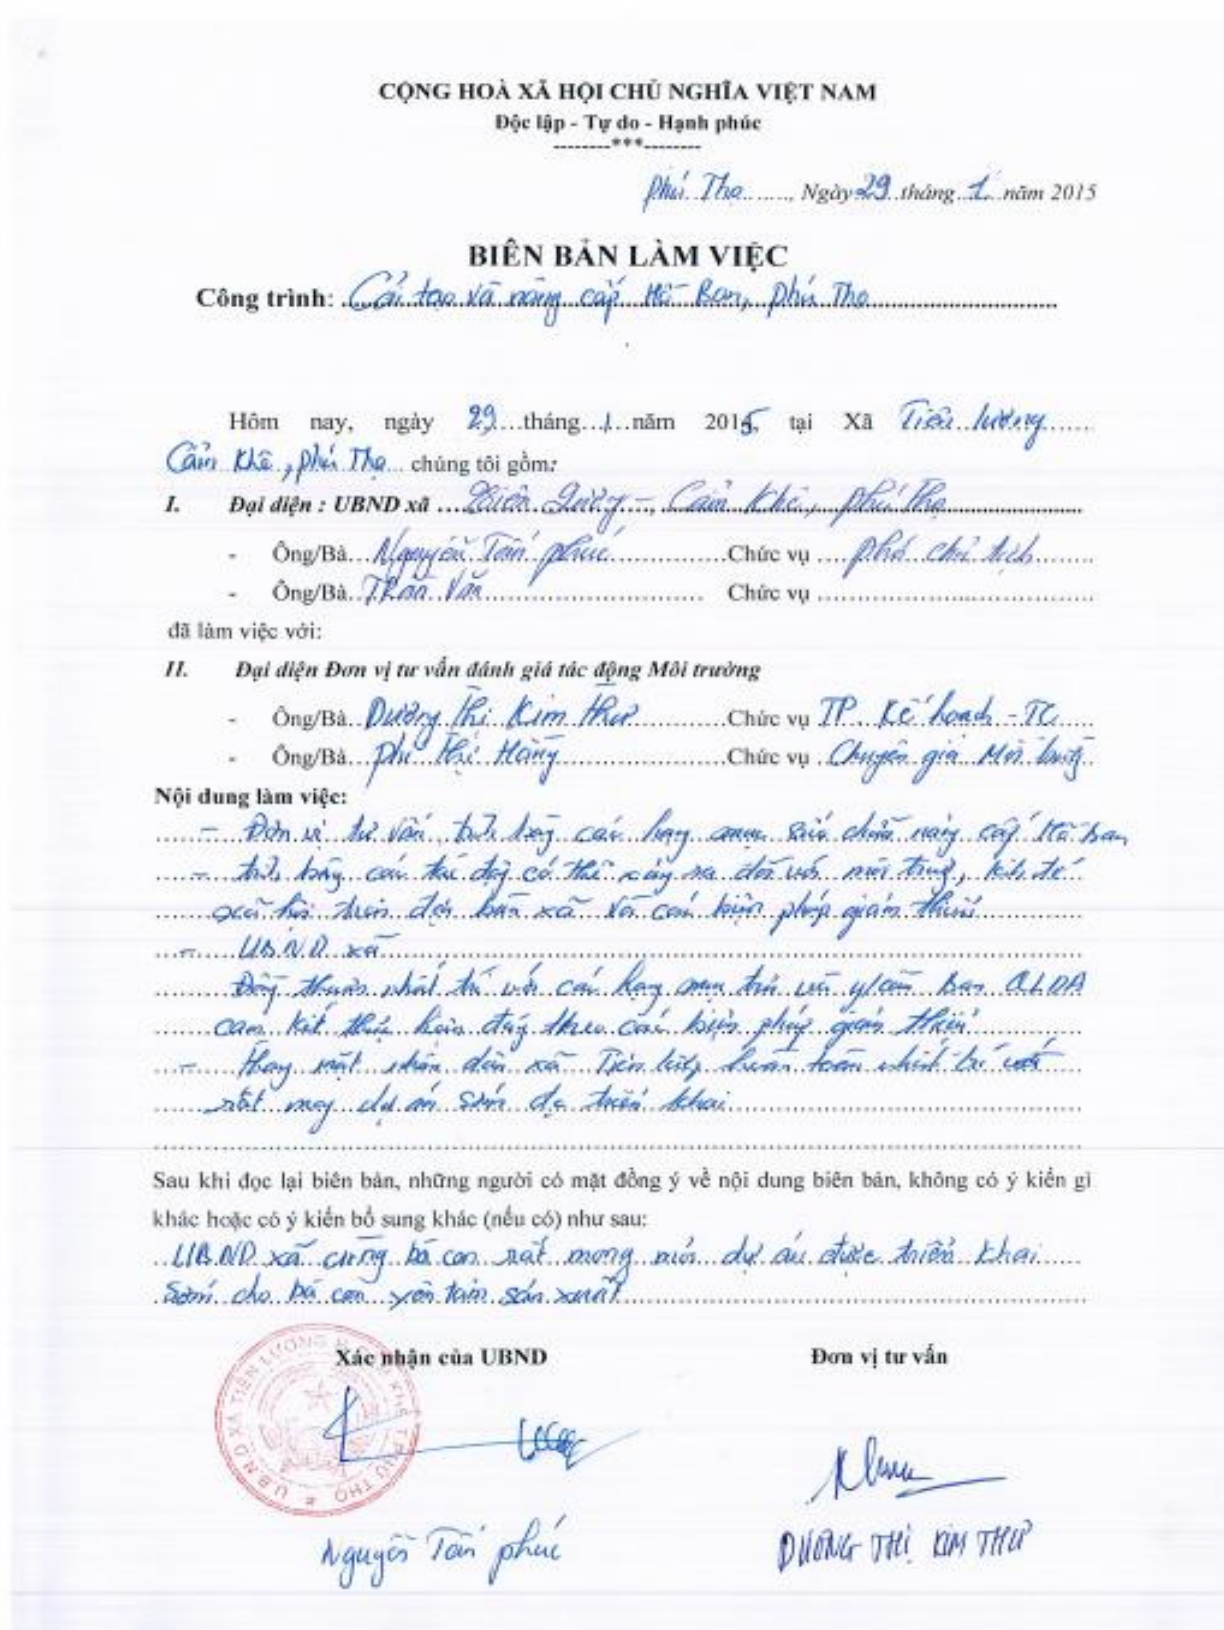 CỘNG HOÀ XÃ HỘI CHỦ NGHĨA VIỆT NAM
Độc lập - Tự do - Hạnh phúc
--------***--------
Phú Thọ......, Ngày 29 tháng 1 năm 2015
BIÊN BẢN LÀM VIỆC
Công trình: Cải tạo và nâng cấp Hồ Ban, Phú Thọ
Hôm nay, ngày 29 tháng 1 năm 2015, tại Xã Tiên Lương
Cẩm Khê, Phú Thọ chúng tôi gồm:
I. Đại diện : UBND xã Tiên Lương, Cẩm Khê, Phú Thọ
- Ông/Bà Nguyễn Tấn Phúc Chức vụ Phó chủ tịch
- Ông/Bà Trần Văn Chức vụ
đã làm việc với:
II. Đại diện Đơn vị tư vấn đánh giá tác động Môi trường
- Ông/Bà Dương Thị Kim Thư Chức vụ TP. Kế hoạch - TC
- Ông/Bà Phí Thị Hằng Chức vụ Chuyên gia Môi trường
Nội dung làm việc:
- Đơn vị tư vấn trình bày các hạng mục sửa chữa nâng cấp Hồ Ban
- trình bày các tác động có thể xảy ra đối với môi trường, kinh tế
xã hội trên địa bàn xã và các biện pháp giảm thiểu
- UBND xã
Đồng thuận nhất trí với các hạng mục trên và y/cầu Ban QLDA
cam kết thực hiện đúng theo các biện pháp giảm thiểu
- Thay mặt nhân dân xã Tiên Lương hoàn toàn nhất trí với
rất mong dự án sớm đc triển khai
Sau khi đọc lại biên bản, những người có mặt đồng ý về nội dung biên bản, không có ý kiến gì
khác hoặc có ý kiến bổ sung khác (nếu có) như sau:
UBND xã cùng bà con rất mong mỏi dự án được triển khai
Sớm cho bà con yên tâm sản xuất
Xác nhận của UBND Đơn vị tư vấn
U.B.N.D XÃ TIÊN LƯƠNG H. CẨM KHÊ T. PHÚ THỌ
Nguyễn Tấn Phúc DƯƠNG THỊ KIM THƯ